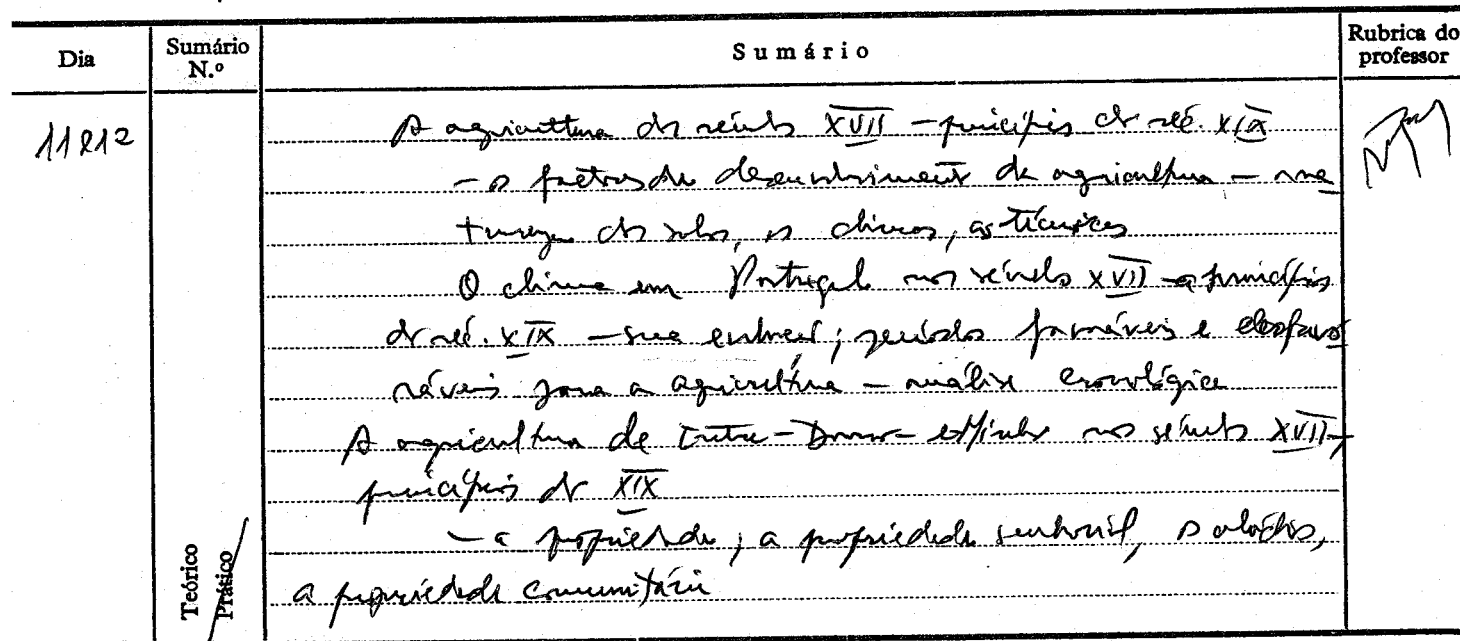 Dia
Sumário N.º
Sumário
Rubrica do professor
11 e 12
A agricultura do século XVII - princípios do séc. XIX
- os factores de desenvolvimento da agricultura - na
tureza dos solos, os climas, as técnicas
O clima em Portugal nos século XVII - a princípios
do séc. XIX - sua ; períodos favoráveis e desfavo
ráveis para a agricultura - análise cronológica
A agricultura de Entre-Douro-e-Minho nos século XVII -
princípios do XIX
- a propriedade; a propriedade senhorial, os alódios,
a propriedade comunitária
Teórico
Prático